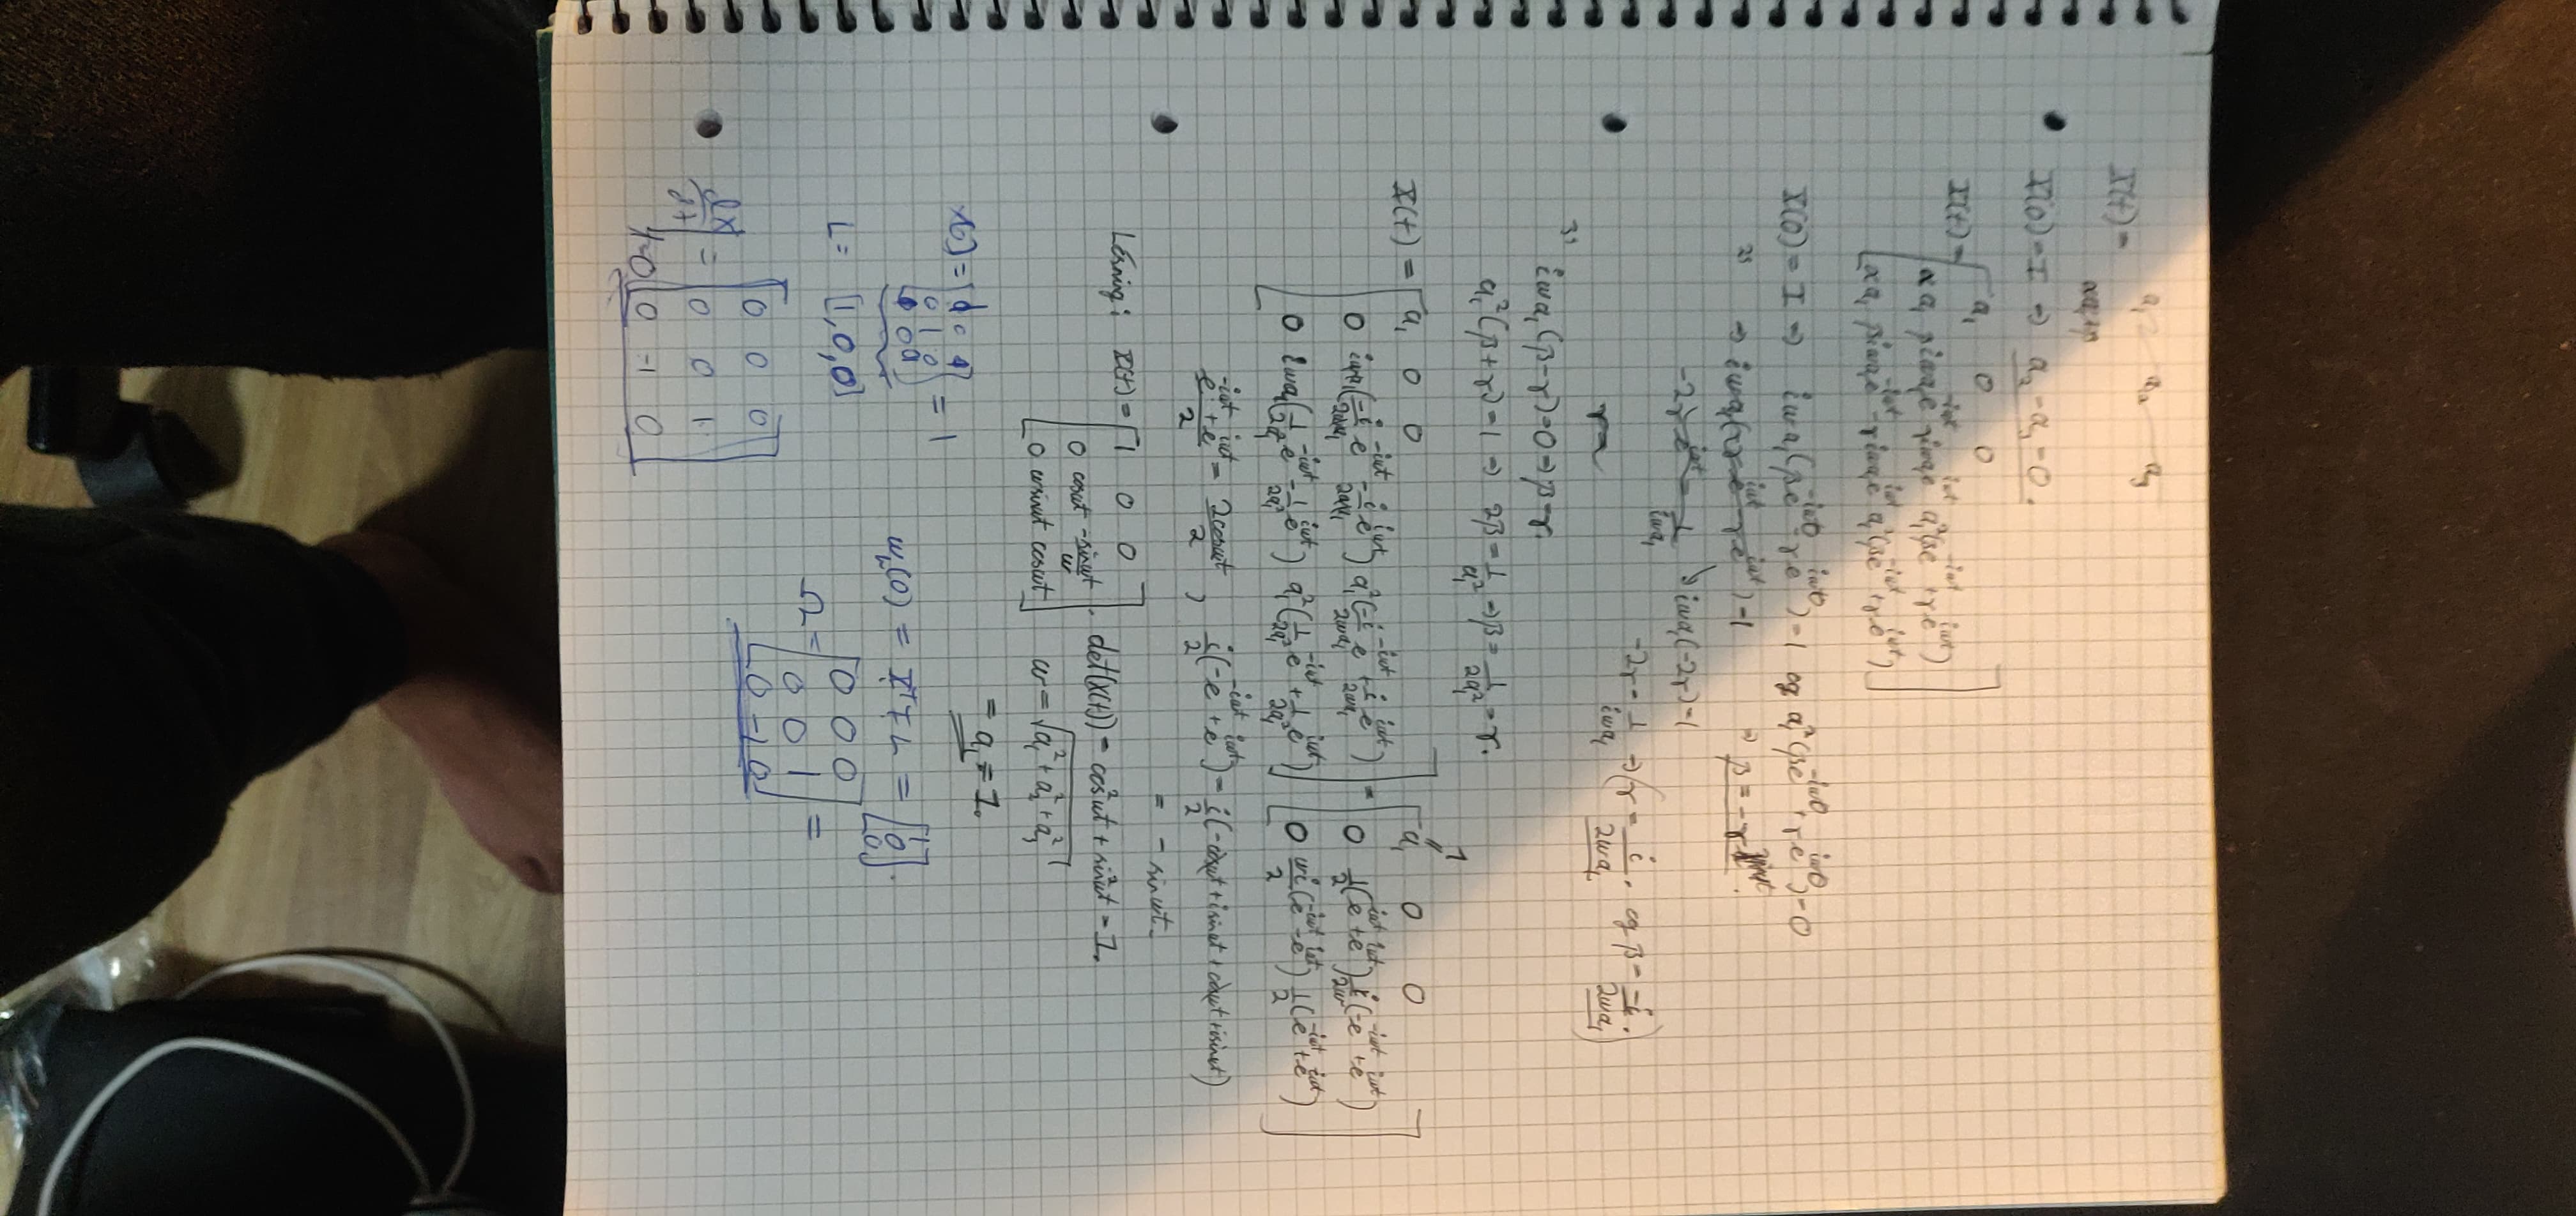 X(t) = a₁ a₂ a₃
X(0) = I ⇒ a₂ = a₃ = 0.
X(t) = [ a₁ 0 0
αa₁ βiωa₁e^{-iωt} - γiωa₁e^{iωt} a₁²(βe^{-iωt} + γe^{iωt})
αa₁ βiωa₁e^{-iωt} - γiωa₁e^{iωt} a₁²(βe^{-iωt} + γe^{iωt}) ]
X(0) = I ⇒ iωa₁(βe^{-iω0} - γe^{iω0}) = 1 og a₁²(βe^{-iω0} + γe^{iω0}) = 0
⇒ β = -γ
iωa₁(-2γ) = 1
-2γ = 1/(iωa₁) ⇒ (γ = i/(2ωa₁). og β = -i/(2ωa₁).)
iωa₁(β-γ) = 0 ⇒ β = γ.
a₁²(β+γ) = 1 ⇒ 2β = 1/a₁² ⇒ β = 1/(2a₁²) = γ.
1
X(t) = [ a₁ 0 0 ] = [ a₁ 0 0 ]
0 iωa₁(-i/(2ωa₁) e^{-iωt} - i/(2ωa₁) e^{iωt}) a₁²(-i/(2ωa₁) e^{-iωt} + i/(2ωa₁) e^{iωt}) 0 1/2(e^{-iωt} + e^{iωt}) i/(2ω)(-e^{-iωt} + e^{iωt})
0 iωa₁(1/(2a₁²) e^{-iωt} - 1/(2a₁²) e^{iωt}) a₁²(1/(2a₁²) e^{-iωt} + 1/(2a₁²) e^{iωt}) 0 ωi/2(e^{-iωt} - e^{iωt}) 1/2(e^{-iωt} + e^{iωt})
(e^{-iωt} + e^{iωt})/2 = 2cosωt/2 , i/2(-e^{-iωt} + e^{iωt}) = i/2(-cosωt + isinωt + cosωt + isinωt)
= - sinωt.
Løsning: X(t) = [ 1 0 0
0 cosωt -sinωt/ω
0 ωsinωt cosωt ] . det(X(t)) = cos²ωt + sin²ωt = 1.
ω = √(a₁² + a₂² + a₃²)
= a₁ = 1.
0 1 0 = 1
ω_b(0) = X^T I L = [ 1 0 0 ].
L = [1,0,0]
Ω = [ 0 0 0
0 0 1
0 -1 0 ] =
dX/dt | t=0 = [ 0 0 0
0 0 1
0 -1 0 ]